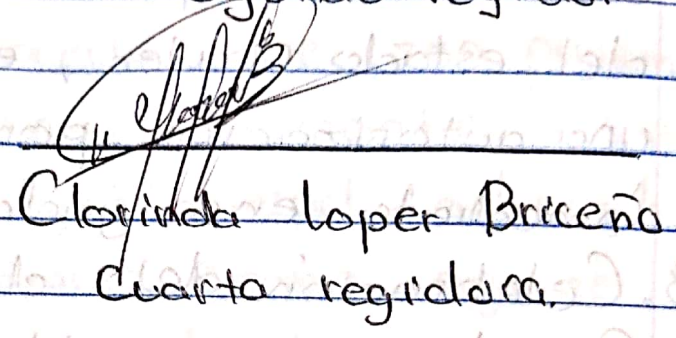 Clorinda Loper Briceño
Cuarta regidora.